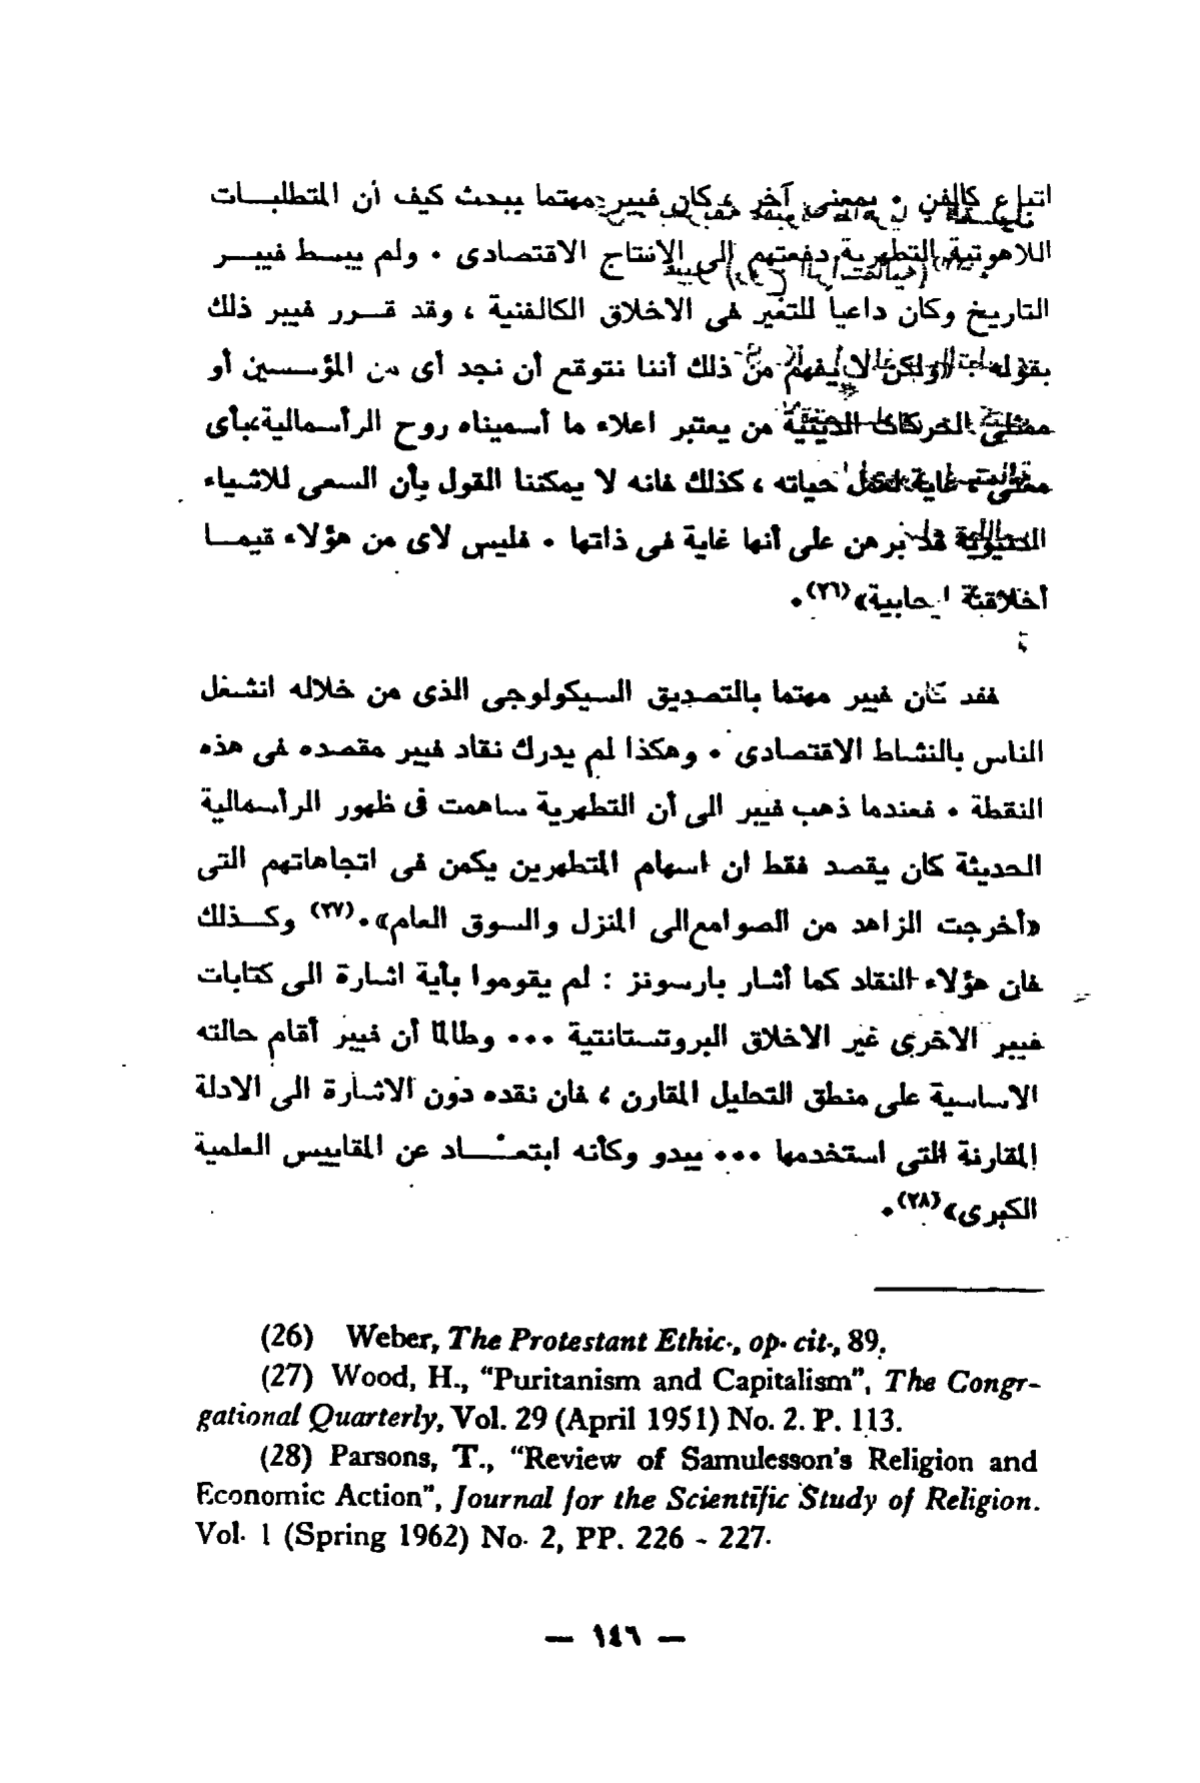 اتباع كالفن ٠ بمعنى آخر ، كان فيبر مهتما يبحث كيف أن المتطلبات
اللاهوتية التطهرية دفعتهم إلى الانتاج الاقتصادى ٠ ولم يبسط فيبر
التاريخ وكان داعيا للتغير فى الاخلاق الكالفنية ، وقد قرر فيبر ذلك
بقوله «ولكن لا يفهم من ذلك أننا نتوقع أن نجد أى من المؤسسين أو
ممثلى الحركات الدينية من يعتبر اعلاء ما أسميناه روح الرأسمالية بأى
معنى ، غاية لعمل حياته ، كذلك فانه لا يمكننا القول بأن السعى للاشياء
الدنيوية قد برهن على أنها غاية فى ذاتها ٠ فليس لاى من هؤلاء قيما
أخلاقية ايجابية»(٢٦)٠
فقد كان فيبر مهتما بالتصديق السيكولوجى الذى من خلاله انشغل
الناس بالنشاط الاقتصادى ٠ وهكذا لم يدرك نقاد فيبر مقصده فى هذه
النقطة ٠ فعندما ذهب فيبر الى أن التطهرية ساهمت فى ظهور الرأسمالية
الحديثة كان يقصد فقط ان اسهام المتطهرين يكمن فى اتجاهاتهم التى
«أخرجت الزاهد من الصوامع الى المنزل والسوق العام»٠(٢٧) وكذلك
فان هؤلاء النقاد كما أشار بارسونز : لم يقوموا بأية اشارة الى كتابات
فيبر الاخرى غير الاخلاق البروتستانتية ٠٠٠ وطالما أن فيبر أقام حالته
الاساسية على منطق التحليل المقارن ، فان نقده دون الاشارة الى الادلة
المقارنة التى استخدمها ٠٠٠ يبدو وكأنه ابتعاد عن المقاييس العلمية
الكبرى»(٢٨)٠
(26) Weber, The Protestant Ethic., op. cit., 89.
(27) Wood, H., “Puritanism and Capitalism”, The Congr-
gational Quarterly, Vol. 29 (April 1951) No. 2. P. 113.
(28) Parsons, T., “Review of Samulesson's Religion and
Economic Action”, Journal for the Scientific Study of Religion.
Vol. 1 (Spring 1962) No. 2, PP. 226 - 227.
— ١٤٦ —